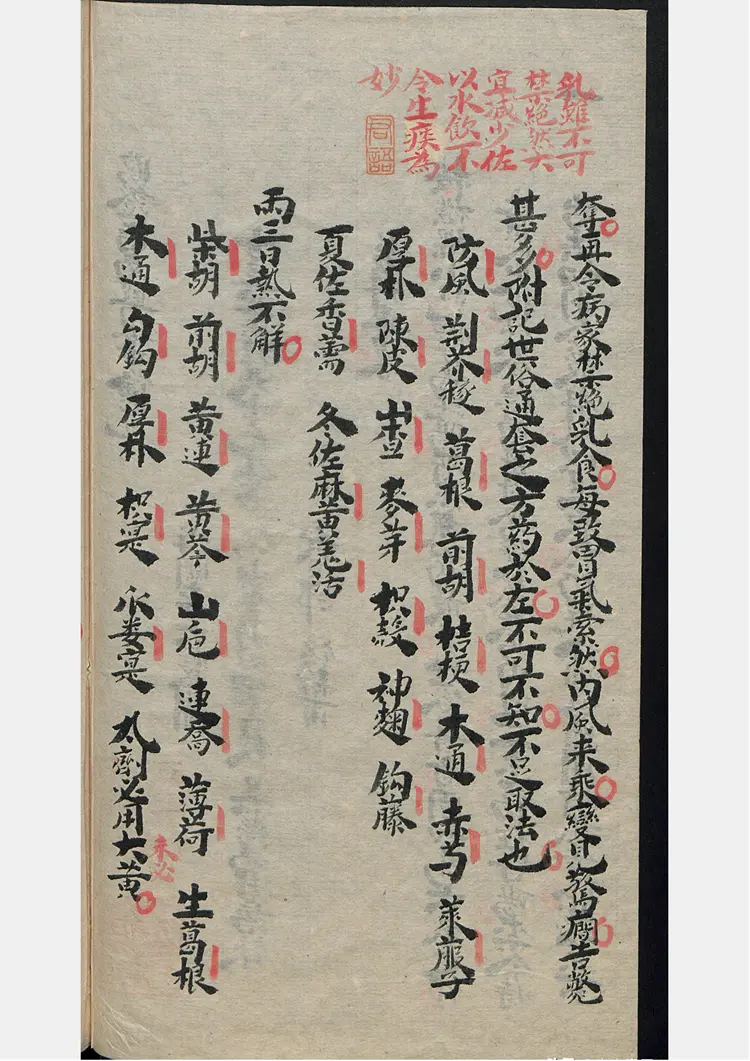 乳雖不可
禁絕然大
宜減少佐
以水飲不
令生痰為
妙
君語
奪再令病家禁絕乳食每致胃氣索然內風來乘變見驚癇告斃
甚多附記世俗通套之方藥於左不可不知不足取法也
防風 荊芥穗 葛根 前胡 桔梗 木通 赤芍 萊菔子
厚朴 陳皮 山查 麥芽 枳殼 神麯 鈎藤
夏佐香薷 冬佐麻黃羌活
兩三日熱不解
柴胡 前胡 黃連 黃芩 山巵 連喬 薄荷 生葛根
木通 勾鈎 厚朴 枳寔 瓜蔞寔 丸劑必用大黃
未必